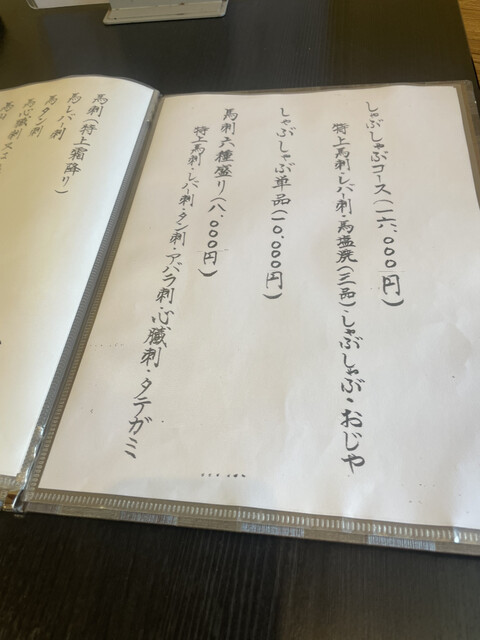 しゃぶしゃぶコース(一六、〇〇〇円)
特上馬刺・レバー刺・馬塩焼(三品)・しゃぶしゃぶ・おじや
しゃぶしゃぶ単品(一〇、〇〇〇円)
馬刺六種盛り(八、〇〇〇円)
特上馬刺・レバー刺・タン刺・アバラ刺・心臓刺・タテガミ
馬刺(特上霜降り)
馬レバー刺
馬タン刺
馬心臓刺